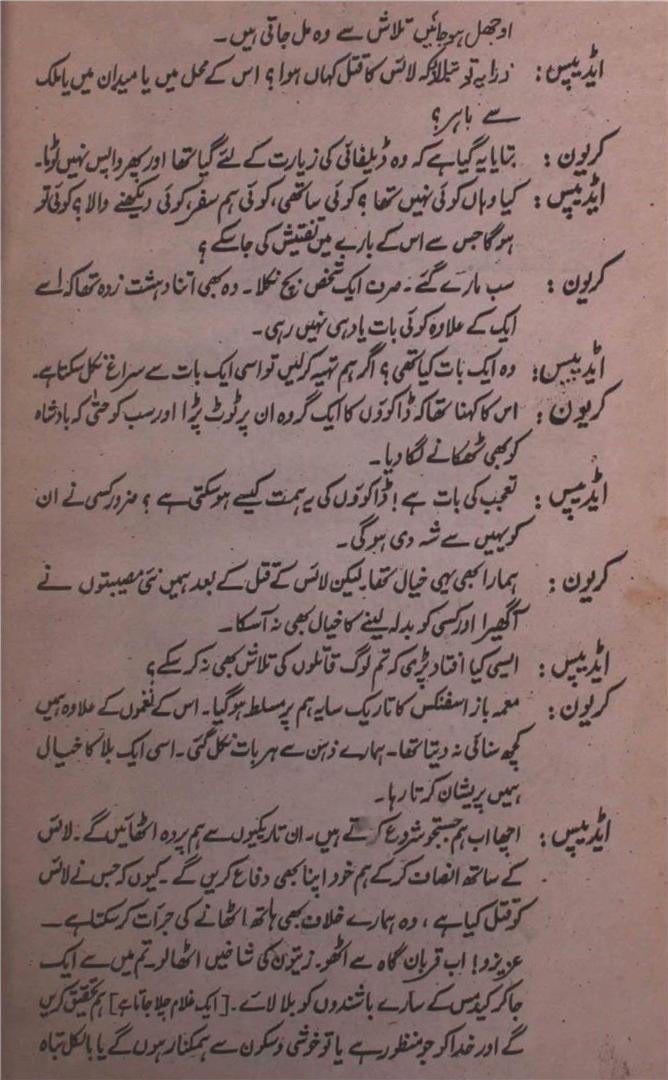 اوجھل ہو جائیں تلاش سے وہ مل جاتی ہیں۔
ایڈیپس: ذرا یہ تو بتلاؤ کہ لائس کا قتل کہاں ہوا؟ اس کے محل میں یا میدان میں یا ملک
سے باہر؟
کریون: بتایا یہ گیا ہے کہ وہ ڈیلفائی کی زیارت کے لئے گیا تھا اور پھر واپس نہیں لوٹا۔
ایڈیپس: کیا وہاں کوئی نہیں تھا؟ کوئی ساتھی، کوئی ہم سفر، کوئی دیکھنے والا؟ کوئی تو
ہوگا جس سے اس کے بارے میں تفتیش کی جا سکے؟
کریون: سب مارے گئے۔ صرف ایک شخص بچ نکلا۔ وہ بھی اتنا دہشت زدہ تھا کہ اسے
ایک کے علاوہ کوئی بات یاد ہی نہیں رہی۔
ایڈیپس: وہ ایک بات کیا تھی؟ اگر ہم تہیہ کر لیں تو اسی ایک بات سے سراغ نکل سکتا ہے۔
کریون: اس کا کہنا تھا کہ ڈاکوؤں کا ایک گروہ ان پر ٹوٹ پڑا اور سب کو حتیٰ کہ بادشاہ
کو بھی ٹھکانے لگا دیا۔
ایڈیپس: تعجب کی بات ہے! ڈاکوؤں کی یہ ہمت کیسے ہو سکتی ہے؟ ضرور کسی نے ان
کو یہیں سے شہ دی ہوگی۔
کریون: ہمارا بھی یہی خیال تھا۔ لیکن لائس کے قتل کے بعد ہمیں نئی مصیبتوں نے
آگھیرا اور کسی کو بدلہ لینے کا خیال بھی نہ آسکا۔
ایڈیپس: ایسی کیا افتاد پڑی کہ تم لوگ قاتلوں کی تلاش بھی نہ کر سکے؟
کریون: معمہ باز اسفنکس کا تاریک سایہ ہم پر مسلط ہو گیا۔ اس کے نغموں کے علاوہ ہمیں
کچھ سنائی نہ دیتا تھا۔ ہمارے ذہن سے ہر بات نکل گئی۔ اسی ایک بلا کا خیال
ہمیں پریشان کرتا رہا۔
ایڈیپس: اچھا اب ہم جستجو شروع کرتے ہیں۔ ان تاریکیوں سے ہم پردہ اٹھائیں گے۔ لائس
کے ساتھ انصاف کر کے ہم خود اپنا بھی دفاع کریں گے۔ کیوں کہ جس نے لائس
کو قتل کیا ہے، وہ ہمارے خلاف بھی ہاتھ اٹھانے کی جرأت کر سکتا ہے۔
عزیزو! اب قربان گاہ سے اٹھو۔ زیتون کی شاخیں اٹھا لو۔ تم میں سے ایک
جا کر کیڈمس کے سارے باشندوں کو بلا لائے۔ [ایک غلام چلا جاتا ہے] ہم تحقیق کریں
گے اور خدا کو جو منظور ہے یا تو خوشی و سکون سے ہمکنار ہوں گے یا بالکل تباہ